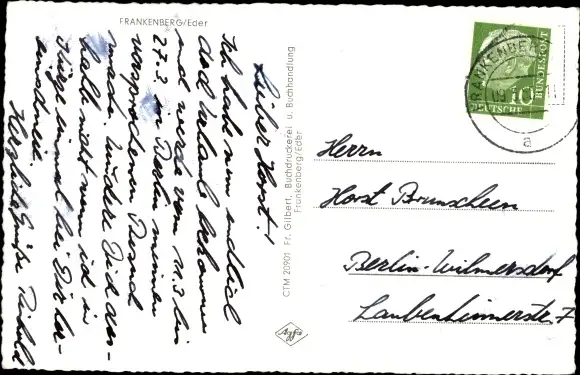 FRANKENBERG/Eder
Lieber Horst!
Ich habe nun endlich
doch Urlaub bekommen
und werde vom 11.3 bis
27.3. in Berlin meinen
versprochenen Besuch
machen. Wundere Dich des-
halb nicht wenn ich in
Kürze einmal bei Dir her-
einschneie.
Herzliche Grüße
CTM 20901 Fr. Gilbert, Buchdruckerei u. Buchhandlung
Frankenberg/Eder
Agfa
FRANKENBERG
a
10
DEUTSCHE
BUNDESPOST
Herrn
Horst
Berlin-Wilmersdorf
Laubenheimerstr. 7